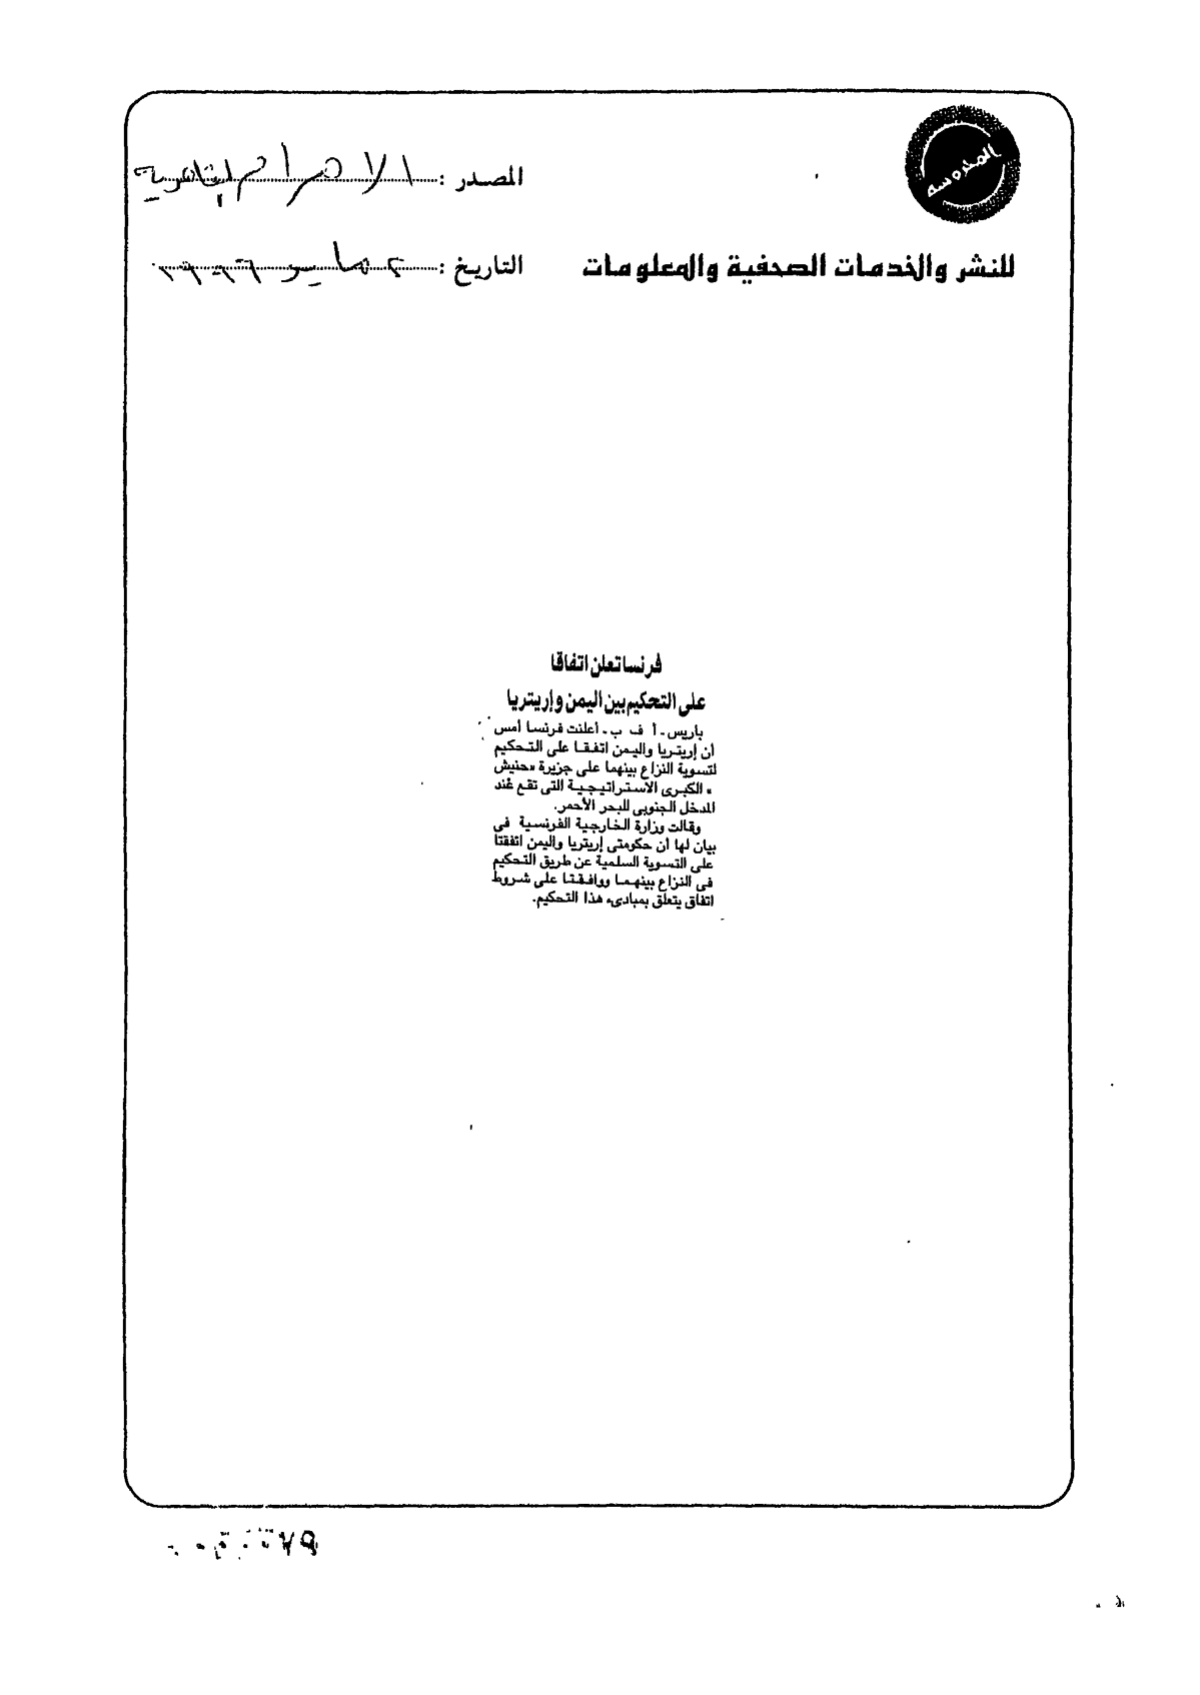 المحروسة
المصدر : الاهرام القاهرية
للنشر والخدمات الصحفية والمعلومات
التاريخ : ٢ مايو ١٩٩٦
فرنسا تعلن اتفاقا
على التحكيم بين اليمن وإريتريا
باريس ـ أ ف ب ـ أعلنت فرنسا أمس
أن إريتريا واليمن اتفقا على التحكيم
لتسوية النزاع بينهما على جزيرة «حنيش
» الكبرى الاستراتيجية التى تقع عند
المدخل الجنوبى للبحر الأحمر.
وقالت وزارة الخارجية الفرنسية فى
بيان لها أن حكومتى إريتريا واليمن اتفقتا
على التسوية السلمية عن طريق التحكيم
فى النزاع بينهما ووافقتا على شروط
اتفاق يتعلق بمبادىء هذا التحكيم.